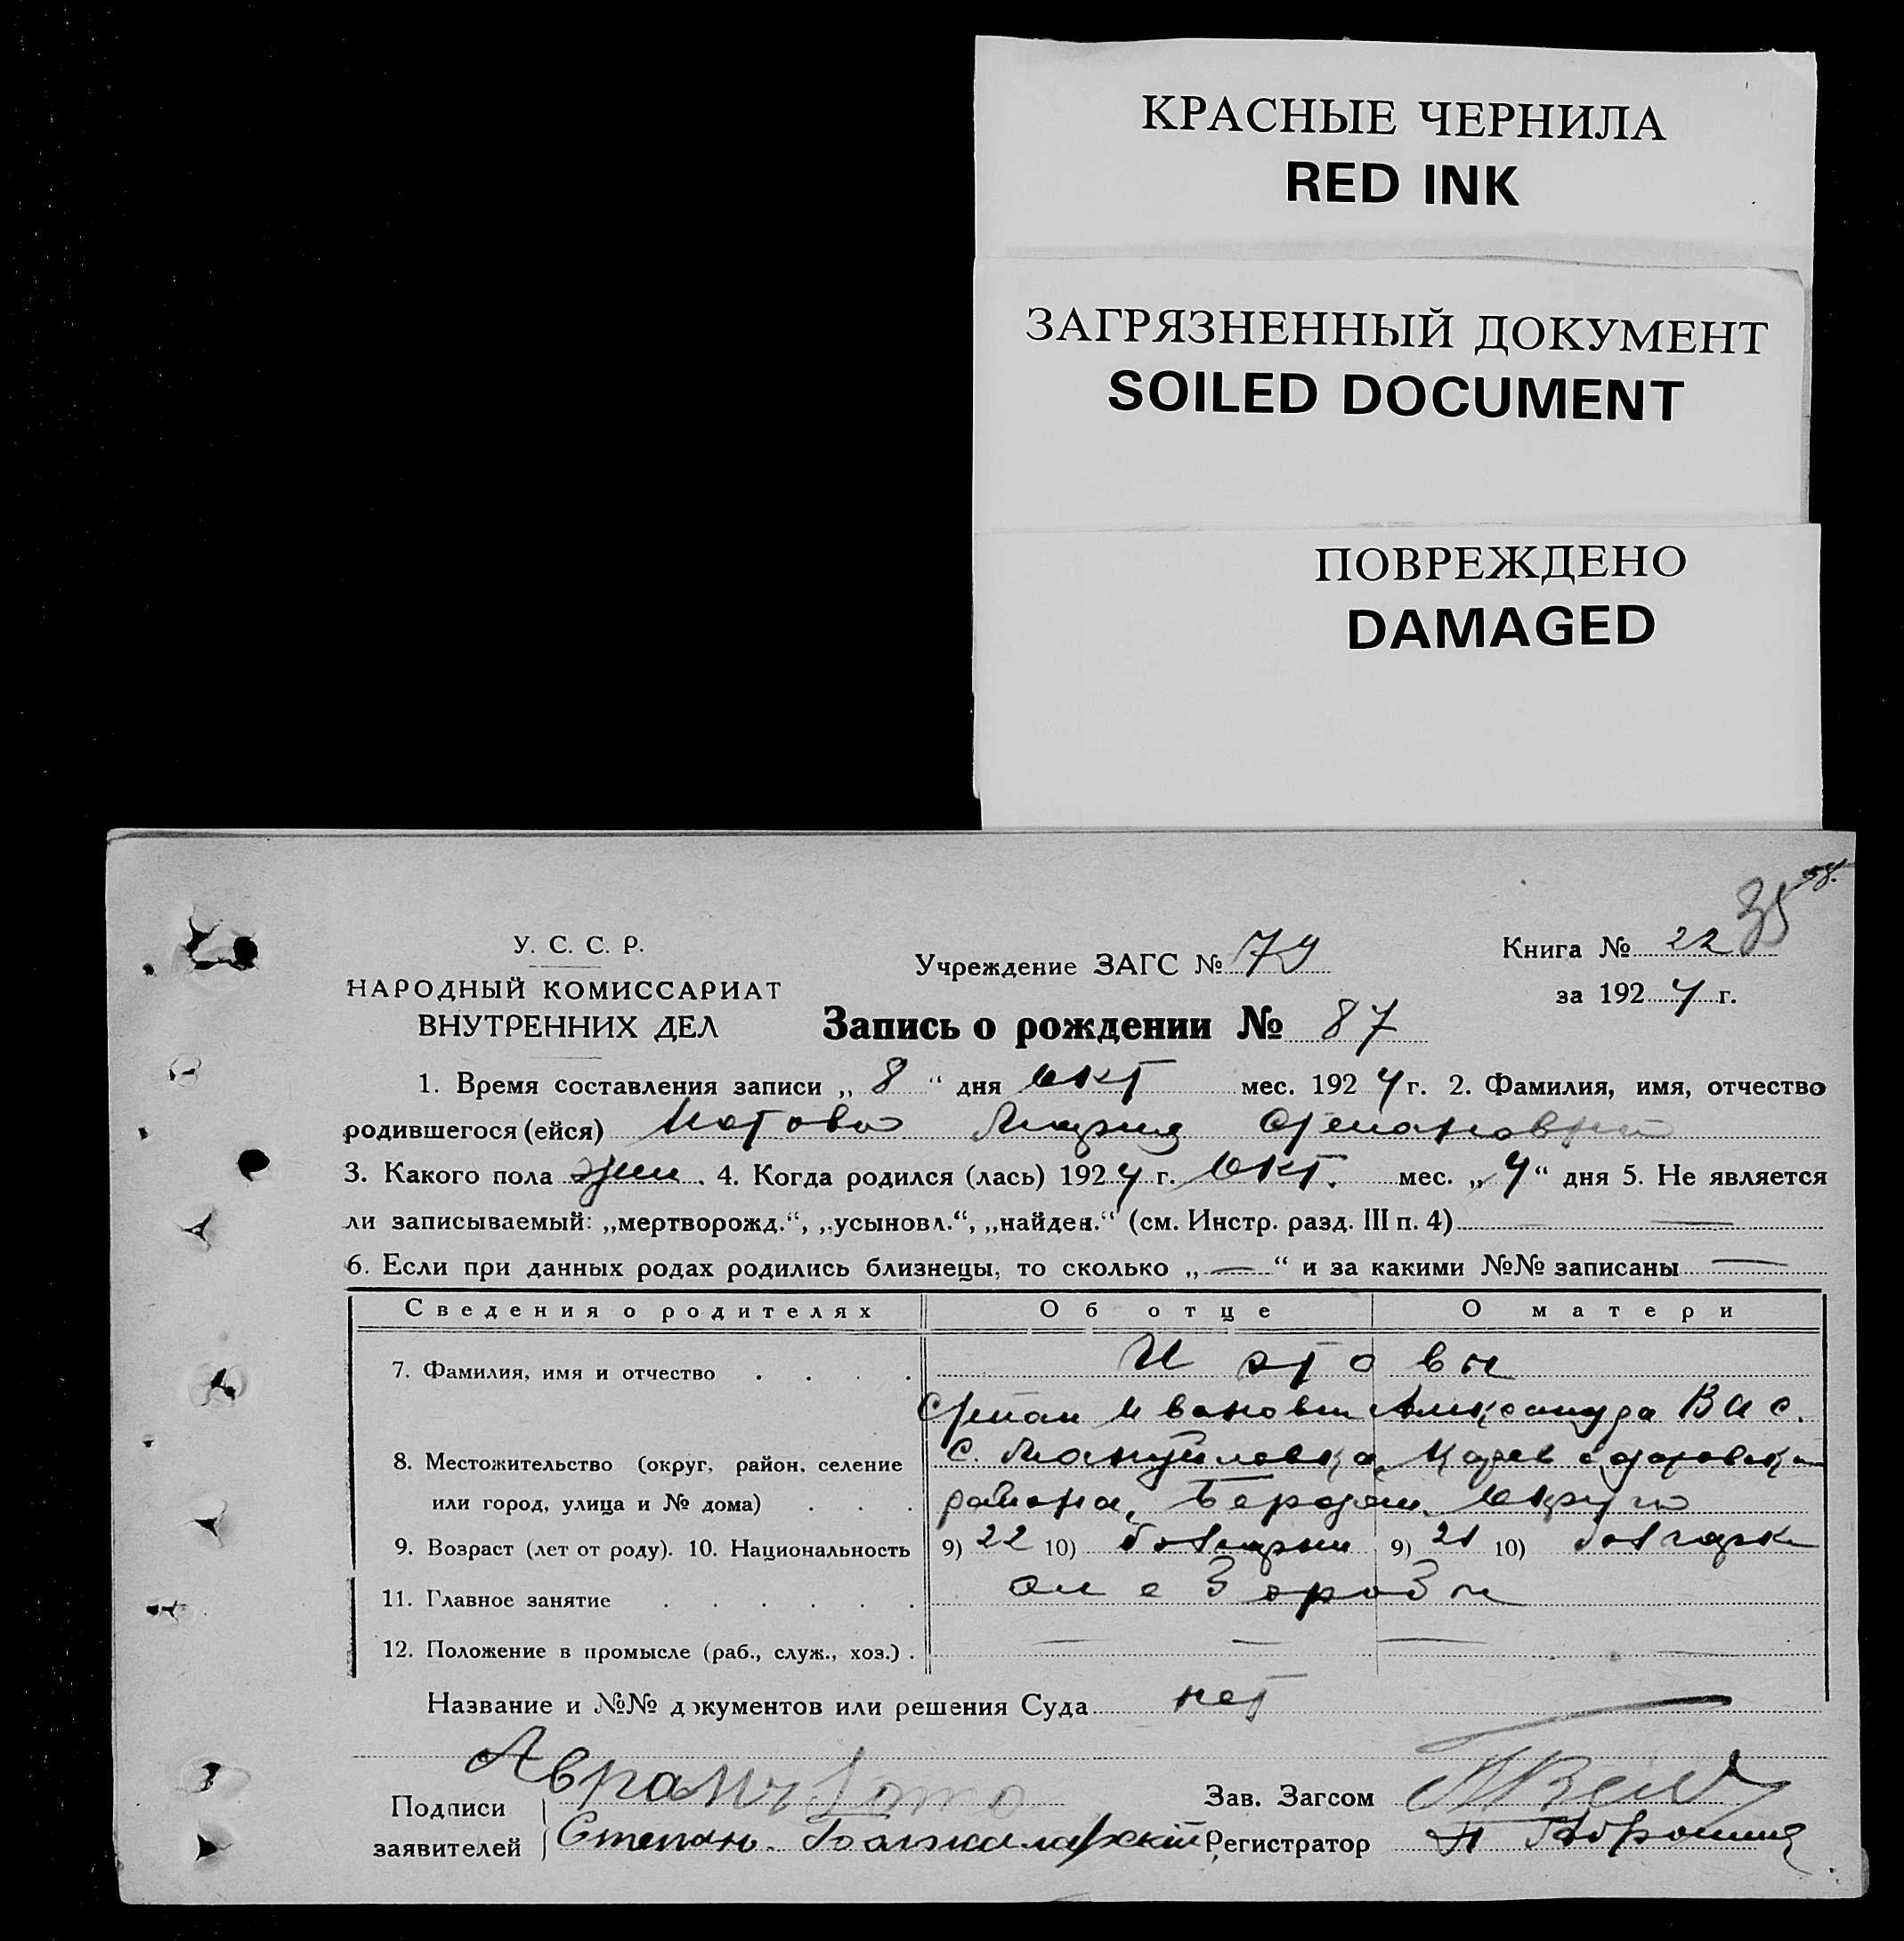 КРАСНЫЕ ЧЕРНИЛА
RED INK
ЗАГРЯЗНЕННЫЙ ДОКУМЕНТ
SOILED DOCUMENT
ПОВРЕЖДЕНО
DAMAGED
35
У. С. С. Р.
НАРОДНЫЙ КОМИССАРИАТ
ВНУТРЕННИХ ДЕЛ
Учреждение ЗАГС № 79
Книга № 22
за 1924 г.
Запись о рождении № 87
1. Время составления записи „ 8 “ дня Окт мес. 1924 г. 2. Фамилия, имя, отчество
родившегося (ейся) Мария Степановна
3. Какого пола жен. 4. Когда родился (лась) 1924 г. Окт. мес. „ 4 “ дня 5. Не является
ли записываемый: „мертворожд.“, „усыновл.“, „найден.“ (см. Инстр. разд. III п. 4) —
6. Если при данных родах родились близнецы, то сколько „—“ и за какими №№ записаны —
Сведения о родителях Об отце О матери
7. Фамилия, имя и отчество . . . .
Степан Иванович Александра Вас.
8. Местожительство (округ, район, селение с. Мануйловка
или город, улица и № дома) . . . района, Бердян. Округа
9. Возраст (лет от роду). 10. Национальность 9) 22 10) болгарин 9) 21 10) болгарка
11. Главное занятие . . . . . .
12. Положение в промысле (раб., служ., хоз.) . — — — —
Название и №№ документов или решения Суда нет
Подписи
заявителей Степан
Зав. Загсом
Регистратор